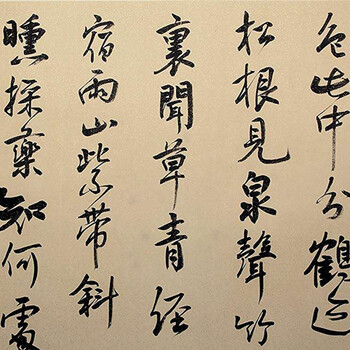 色此中分鶴迹
松根見泉聲竹
裏聞草青經
宿雨山紫帶斜
曛採藥知何處